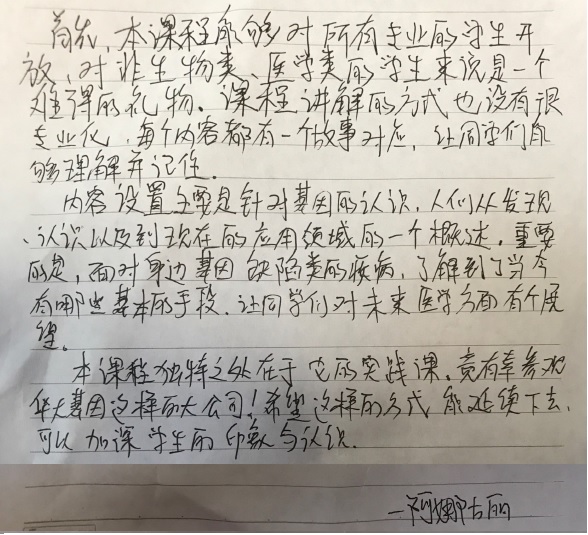 首先，本课程能够对所有专业的学生开
放，对非生物类、医学类的学生来说是一个
难得的礼物。课程讲解的方式也没有很
专业化，每个内容都有一个故事对应，让同学们能
够理解并记住。
内容设置主要是针对基因的认识，人们从发现
、认识以及到现在的应用领域的一个概述，重要
的是，面对身边基因缺陷类的疾病，了解到了当今
有哪些基本的手段，让同学们对未来医学方面有个展
望。
本课程独特之处在于它的实践课，竟有幸参观
华大基因这样的大公司！希望这样的方式能延续下去，
可以加深学生的印象与认识.
—阿娜古丽